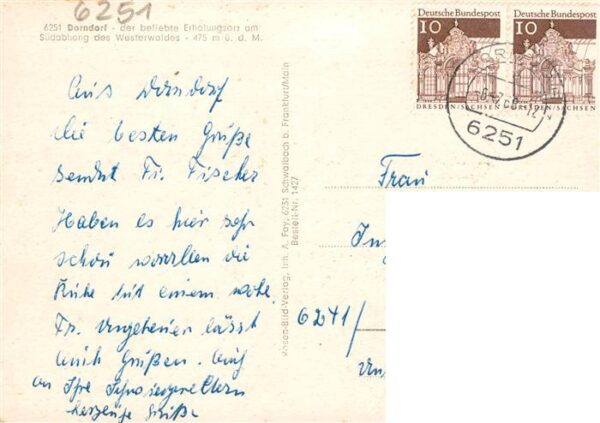 6251
6251 Dorndorf - der beliebte Erholungsort am
Südabhang des Westerwaldes - 475 m ü. d. M.
Aus Dorndorf
die besten Grüße
sendet Fr. Fischer
Haben es hier sehr
schön die
Ruhe tut einem wohl.
Fr. lässt
auch Grüßen. Auch
an Ihre Schwiegereltern
herzliche Grüße
Rosen-Bild-Verlag, Inh. A. Fay, 6231 Schwalbach b. Frankfurt/Main
Bestell-Nr. 1427
Deutsche Bundespost
10
DRESDEN/SACHSEN
Deutsche Bundespost
10
DRESDEN/SACHSEN
6251
Frau
In
6241/